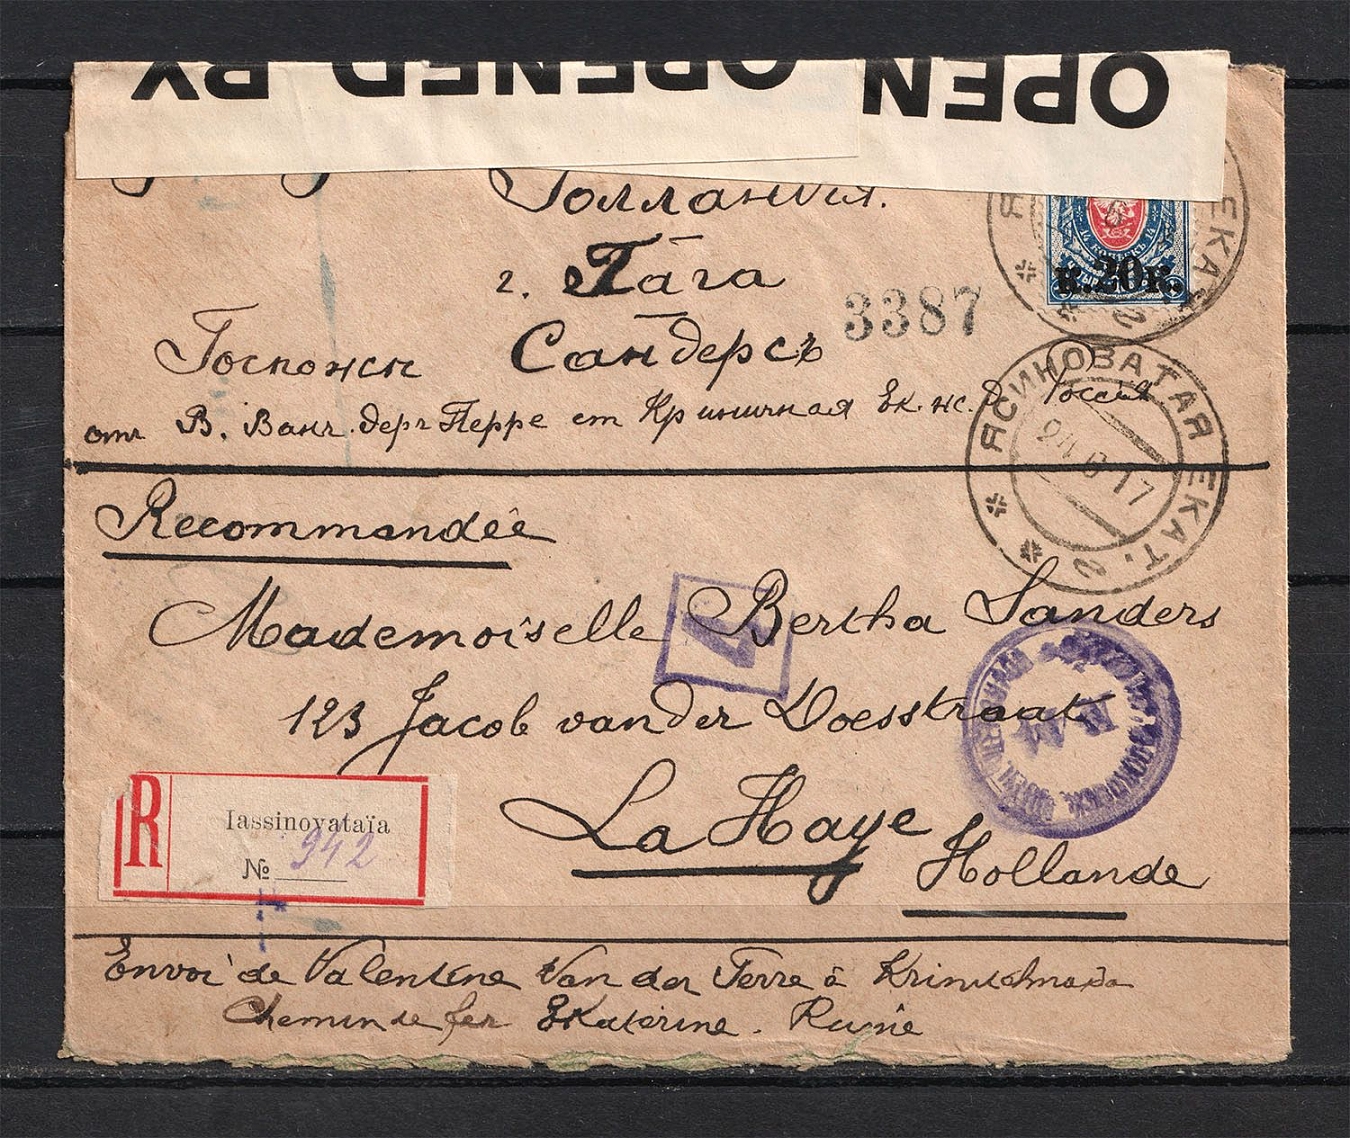 OPENED BY
OPEN
Голландія.
г. Гага
Госпожѣ Сандерсъ
3387
отъ В. Ванъ-деръ-Перре ст Криничная Ек. ж. д. Россія
к.20к.
ЯСИНОВАТАЯ ЕКАТ. 2
Recommandée
Mademoiselle Bertha Sanders
123 Jacob van der Doesstraat
La Haye
Hollande
R
Iassinovataïa
№ 942
Envoi de Valentine Van der Perre à Krinitchnaïa
Chemin de fer Ekaterine. Russie